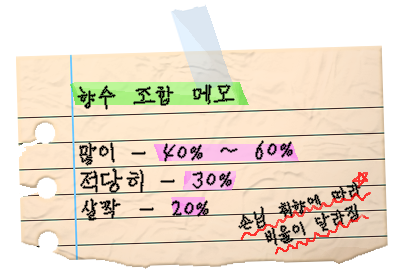 향수 조합 메모
많이 - 40% ~ 60%
적당히 - 30%
살짝 - 20%
손님 취향에 따라
비율이 달라짐